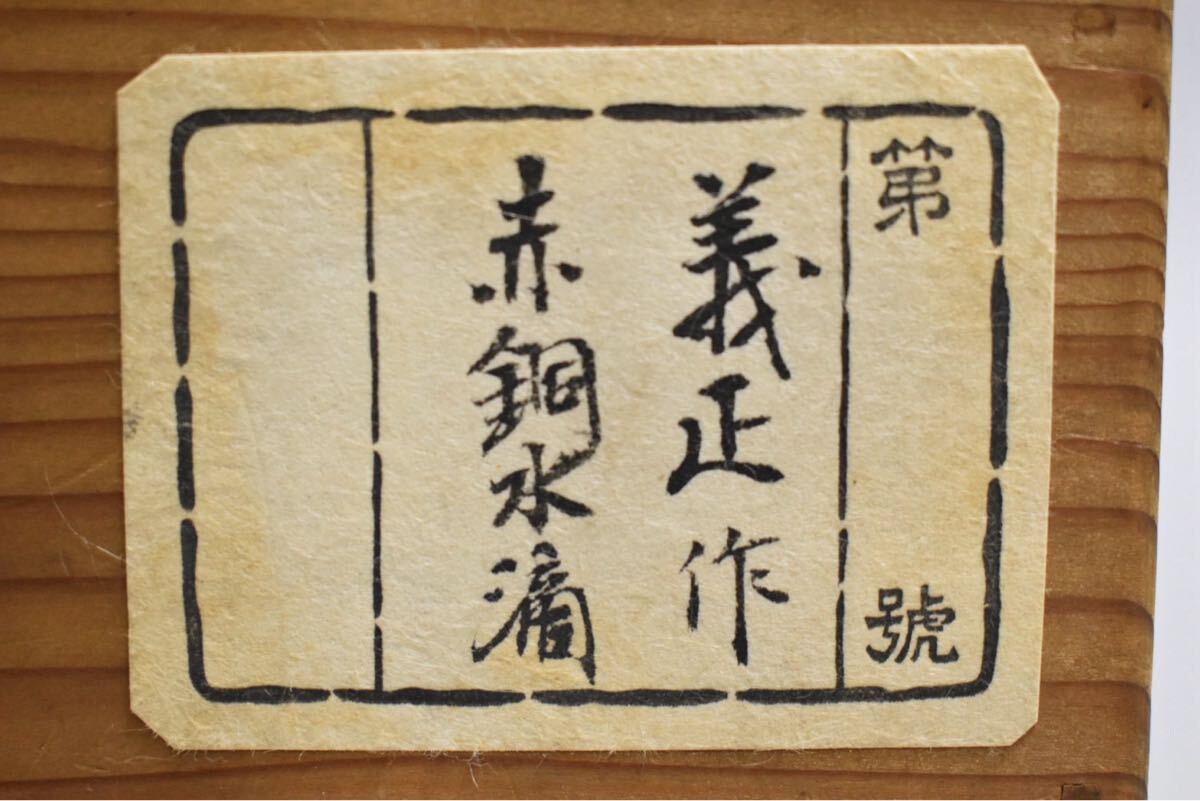 第 號
義正作
赤銅水滴